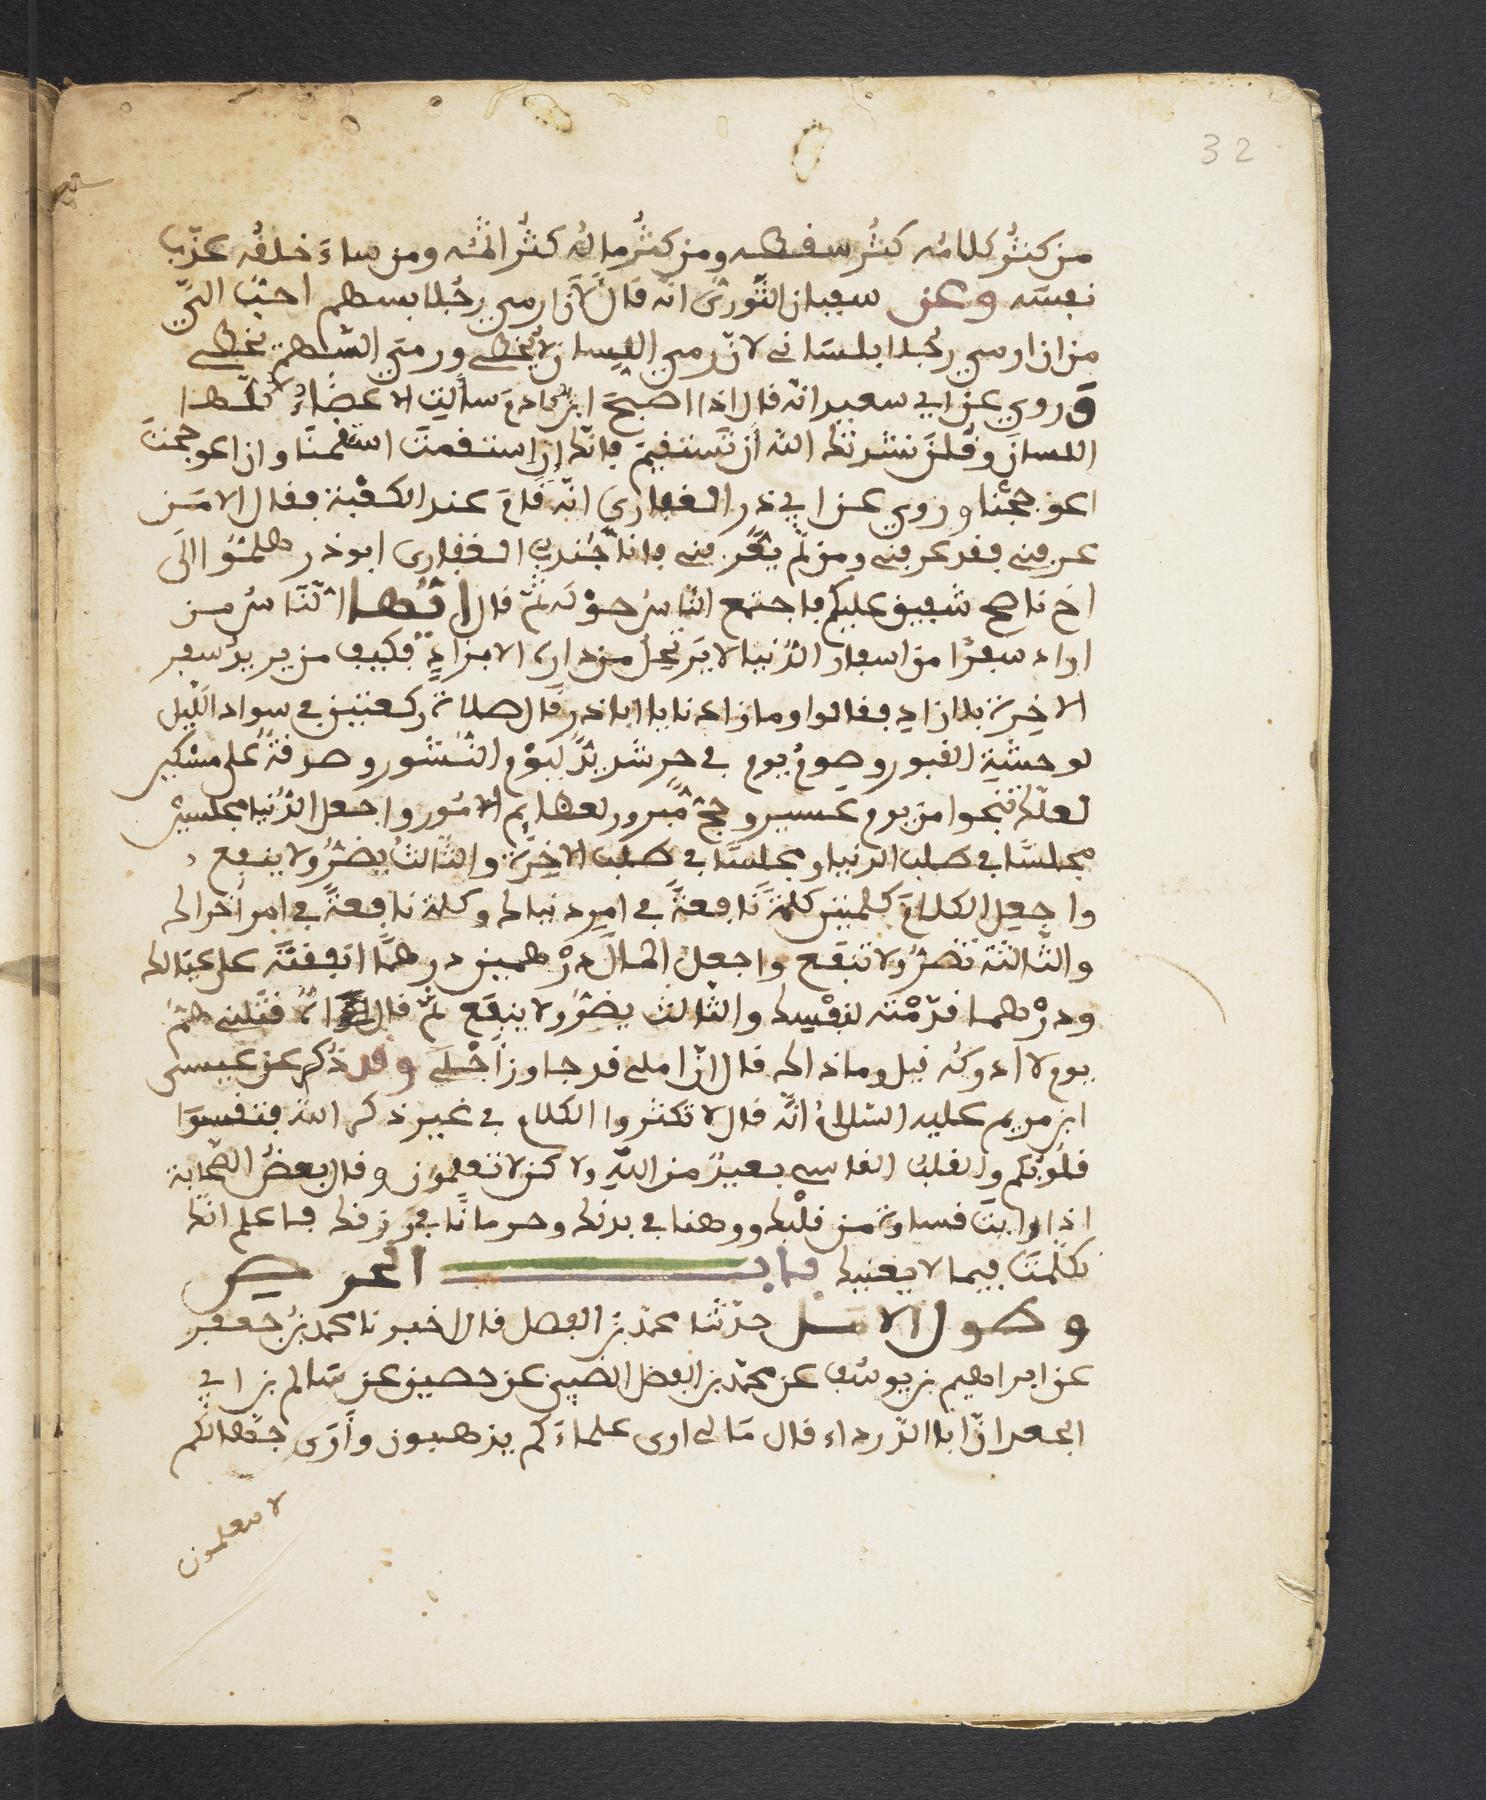 32
من كثُر كلامُه كثُر سقطه ومن كثُر مالُه كثُر اثمُه ومن ساءَ خلقُه عذّب
نفسَه وعن سفيان الثّوريّ انّه قال لَأن ارمي رجُلا بسهم احبّ اليّ
من ان ارمي رجُلا بلسَاني لانّ رمي اللِسان لا يُخطي ورمَي السّهم يخطي
وروي عن ابي سعيد انه قال اذا اصبحَ ابنُ ءادمَ سألتِ الاعضاءُ كلّها
اللسانَ وقلن ننشدك اللّه أن تَستقيم فانّك إن استقمتَ استقمنَا وان اعوججتَ
اعوججنا وروي عن ابي ذر الغفاري انّه قَامَ عند الكعْبة فقال الا مَن
عرفني فقد عرفني ومن لم يعْرفني فانا جُندب الغفارى ابوذر هلمّوا الَى
اخ ناصح شفيق عليكم فاجتمع النّاسُ حوْلَه ثمّ قال ايّها النّاسُ من
اراد سفرًا من اسفار الدّنيا لا يَرتحِلُ من دارِه الا بزادٍ فكيف من يريدُ سفر
الاخِرة بلا زادٍ فقالوا وما زادنا يا اباذر قَال صلاة ركعتين في سواد الَّيل
لوحشةِ القبور وصومُ يوم في حر شديدٍ ليَوْم النّشور وصدقةٌ على مسْكين
لعلّك تنجوا من يوم عسير وحجّ مَّبرور لعظايم الامُور واجعل الدُنيا مجلسيْن
مجلسًا في طلب الدنيا ومجلسًا في طلب الاخِرَة والثّالثُ يضُرُّ ولا ينفع
واجعِل الكلامَ كلمتين كلمةً نَافعةً في امر دنياك وكلمة نافعةً في امر اخراك
والثّالثة تضرُّ ولا تنفَع واجعل المالَ درْهمين درهمًا انفقتَه على عيَالك
ودرْهما قدّمْته لنفْسِك والثّالث يضرُّ ولا ينفَع ثمّ قال امّا قتَلني همُّ
يوم لا ادركُه قيل وما ذالك قال انّ املي قد جاوز أَجْلي وقد ذُكر عن عيسى
ابن مريم عليه السّلامُ انّه قال لا تكثروا الكلام في غير ذكر اللّه فتقسوَا
قلُوبُكم والقلبُ القاسي بعيدٌ من اللّهِ ولاكن لا تعلمون وقال بعضُ الصّحابة
اذا رايتَ قساوة من قلْبك ووهنا في بدنك وحرمانًا في رزقك فاعلم انّك
تكلّمتَ فيما لا يعنيك باب الحرص
وطول الامل حدّثنا محمّد بن الفضل قال اخبرنا محمد بن جعفر
عن ابراهيم بن يوسُف عن محمّد بن الفضل الضّبي عن حصين عن سَالم بن ابي
الجعد انّ ابا الدّرداء قال مَالي ارى علماءَكم يذهبون وأَرَى جهّالكم
لا يتعلمون